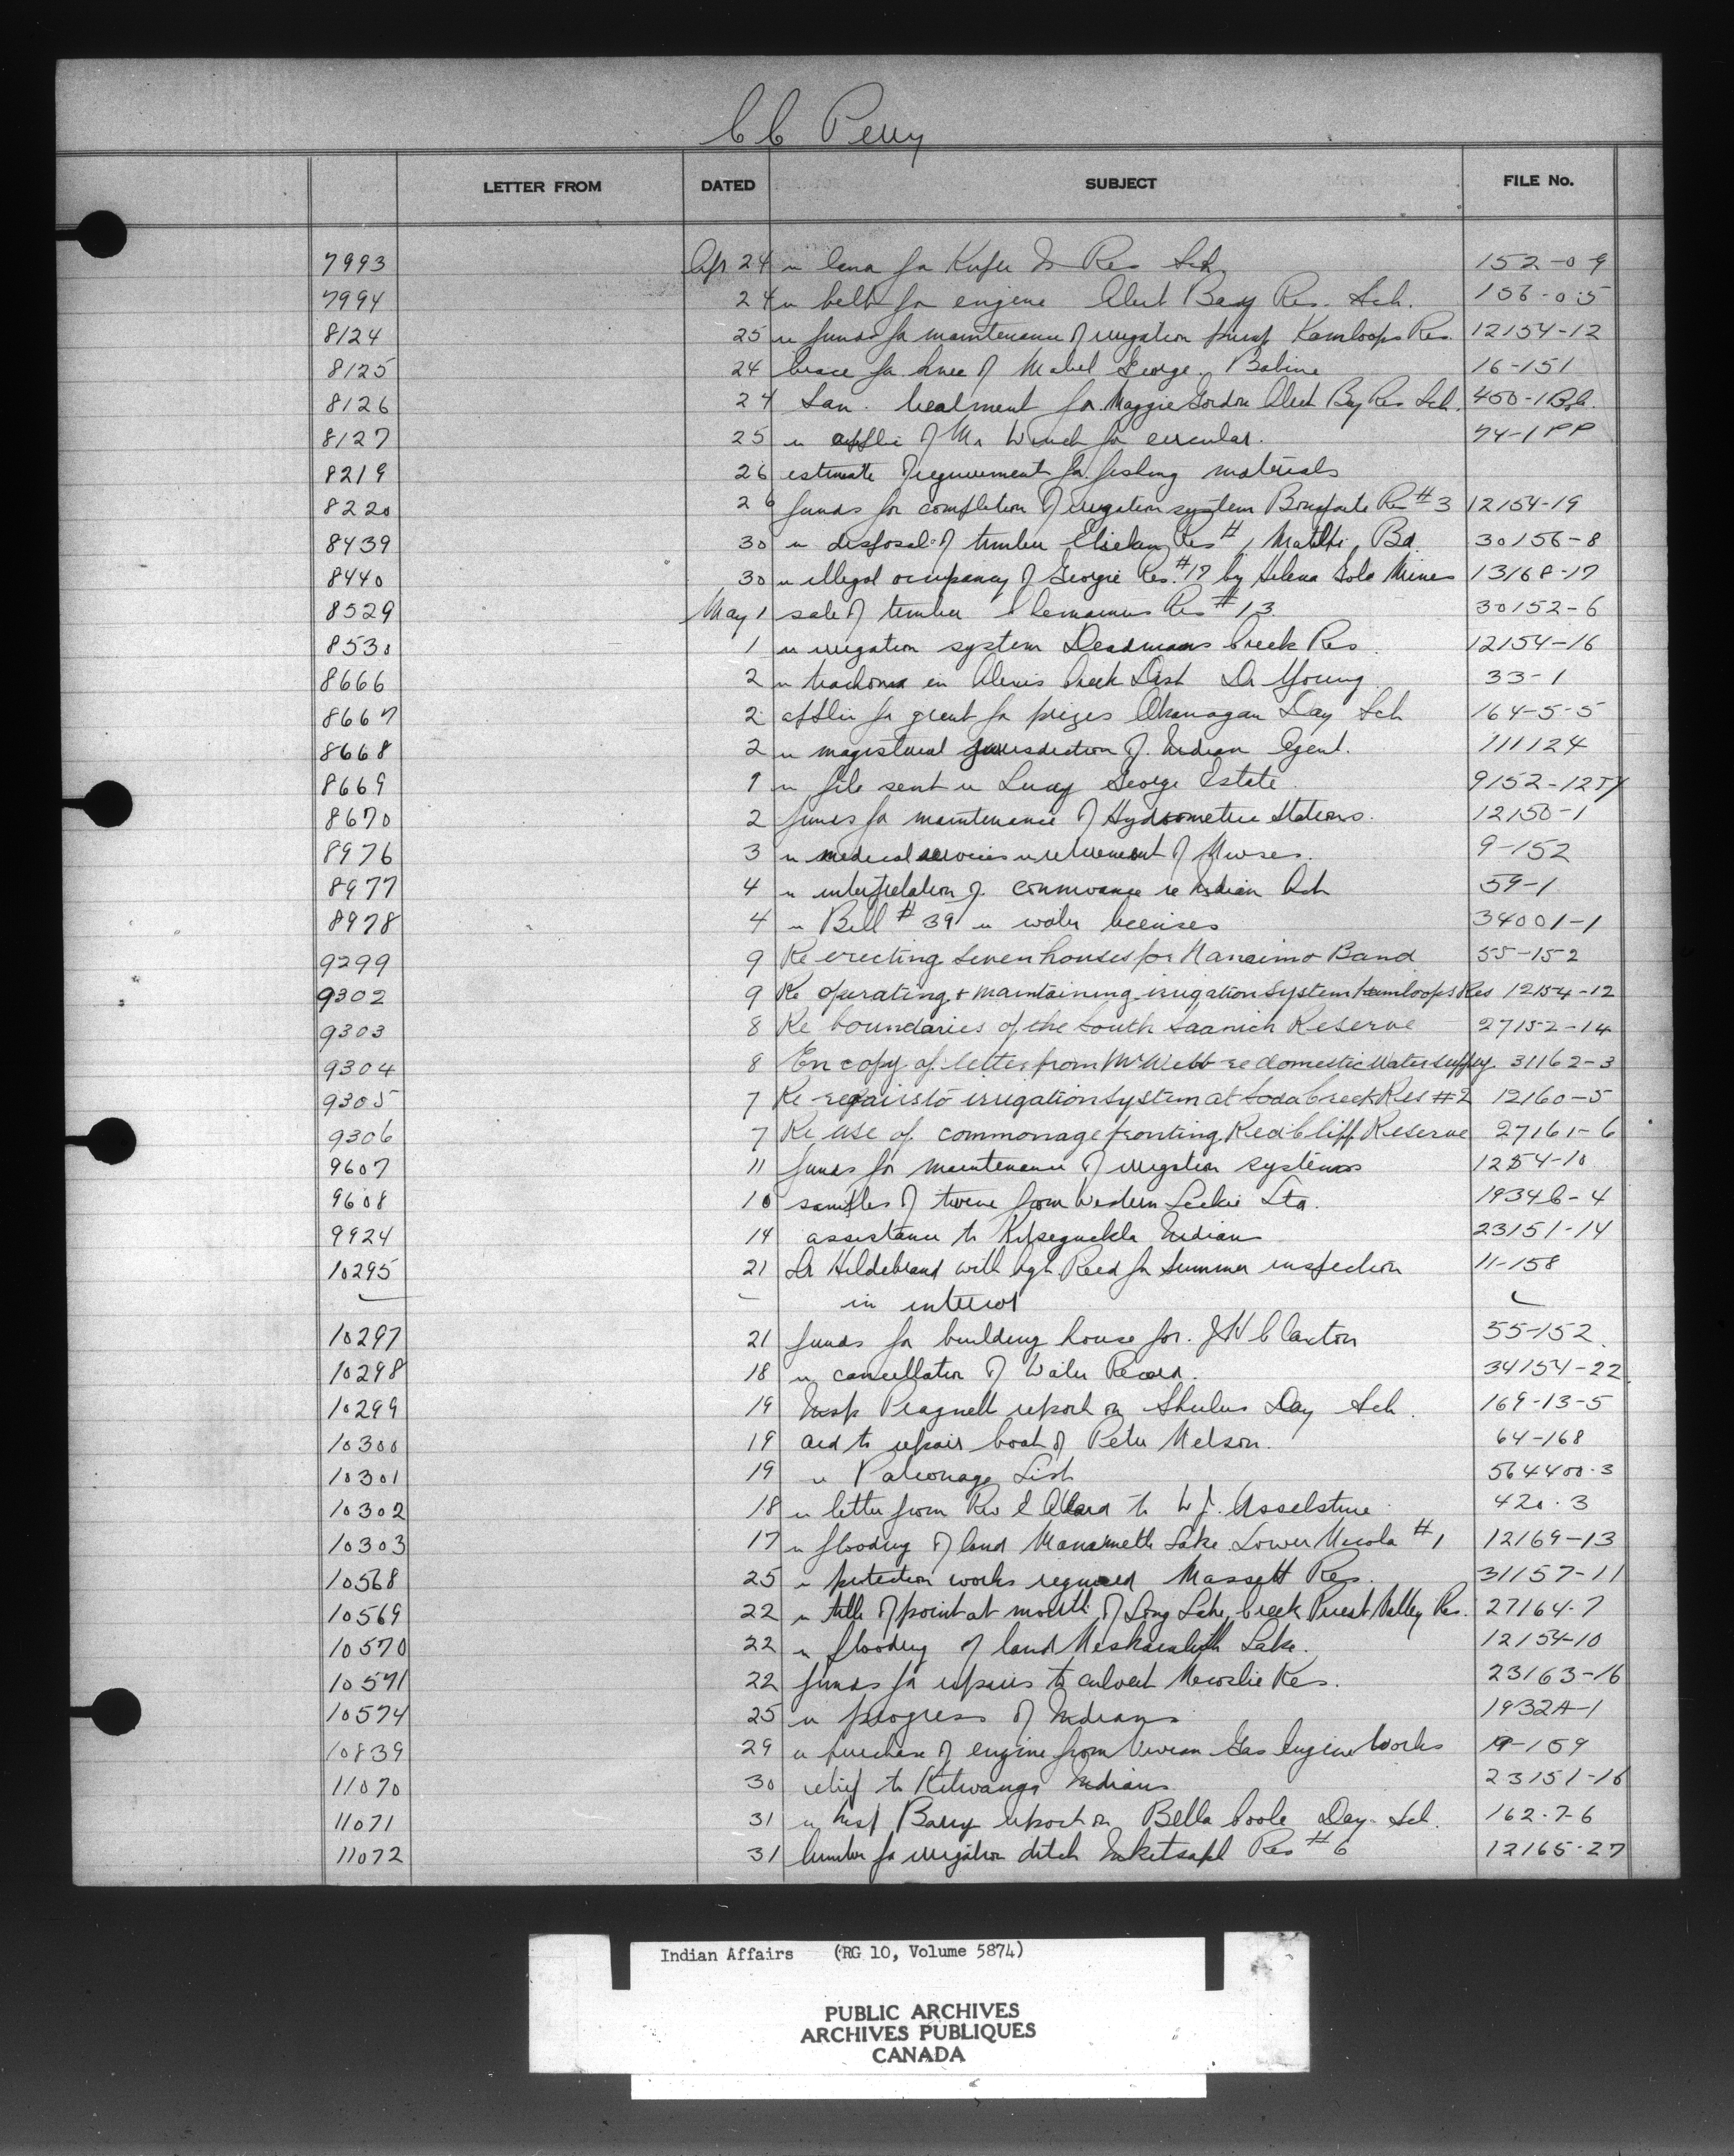 C C Perry
LETTER FROM DATED SUBJECT FILE No.
7993 Apr 24 re for Kuper Is Res Sch 152-0-9
7994 24 re belt for engine Alert Bay Res. Sch. 156-0-5
8124 25 re funds for maintenance of irrigation pump Kamloops Res. 12154-12
8125 24 brace for knee of Mabel George, Babine 16-151
8126 24 San. treatment for Maggie Gordon Alert Bay Res Sch. 450-1 B.C.
8127 25 re applic of Mr Winch for circular. 74-1 PP
8219 26 estimate of requirement for fishing materials
8220 26 funds for completion of irrigation system Bonaparte Res #3 12154-19
8439 30 re disposal of timber Res #1 Matilpi Bd. 30156-8
8440 30 re illegal occupancy of Georgie Res. #17 by Helena Gold Mines 13168-17
8529 May 1 sale of timber Chemainus Res #13 30152-6
8530 1 re irrigation system Deadmans Creek Res. 12154-16
8666 2 re trachoma in Alexis Creek Dist Dr Young 33-1
8667 2 applic for grant for prizes Okanagan Day Sch 164-5-5
8668 2 re magisterial jurisdiction of Indian Agent. 111124
8669 1 re file sent re Lucy George Estate 9152-1254
8670 2 funds for maintenance of Hydrometric Stations. 12150-1
8976 3 re medical services re retirement of Nurses. 9-152
8977 4 re interpretation of connivance re Indian Act 59-1
8978 4 re Bill #39 re water licenses 34001-1
9299 9 Re erecting seven houses for Nanaimo Band 55-152
9302 9 Re operating & maintaining irrigation system Kamloops Res 12154-12
9303 8 Re boundaries of the South Saanich Reserve 27152-14
9304 8 En copy of letter from Mr Webb re domestic water supply. 31162-3
9305 7 Re repairs to irrigation system at Soda Creek Res #2 12160-5
9306 7 Re use of commonage fronting Red Cliff Reserve 27161-6
9607 11 funds for maintenance of irrigation systems 1254-10
9608 10 samples of twine from Western Leckie Ltd. 1934C-4
9924 14 assistance to Kitseguekla Indians 23151-14
10295 21 Dr Hildebrand with Agt Reed for Summer inspection 11-158
in interior
10297 21 funds for building house for J H Claxton 55-152
10298 18 re cancellation of Water Record. 34154-22
10299 19 Insp Pragnell report on Shulus Day Sch. 169-13-5
10300 19 aid to repair boat of Peter Nelson. 64-168
10301 19 re Patronage List 564400-3
10302 18 re letter from Rev E Allard to W J. Asselstine 420-3
10303 17 re flooding of land Lake Lower Nicola #1 12169-13
10568 25 re protection works required Massett Res. 31157-11
10569 22 re title of point at mouth of Long Lake Creek Priest Valley Res. 27164-7
10570 22 re flooding of land Neskainlith Lake. 12154-10
10571 22 funds for repairs to culvert Necoslie Res. 23163-16
10574 25 re progress of Indians 1932A-1
10839 29 re purchase of engine from Vivian Gas Engine Works 19-159
11070 30 relief to Kitwanga Indians 23151-16
11071 31 re Insp Barry report on Bella Coola Day Sch. 162-7-6
11072 31 lumber for irrigation ditch Res #6 12165-27
Indian Affairs (RG 10, Volume 5874)
PUBLIC ARCHIVES
ARCHIVES PUBLIQUES
CANADA